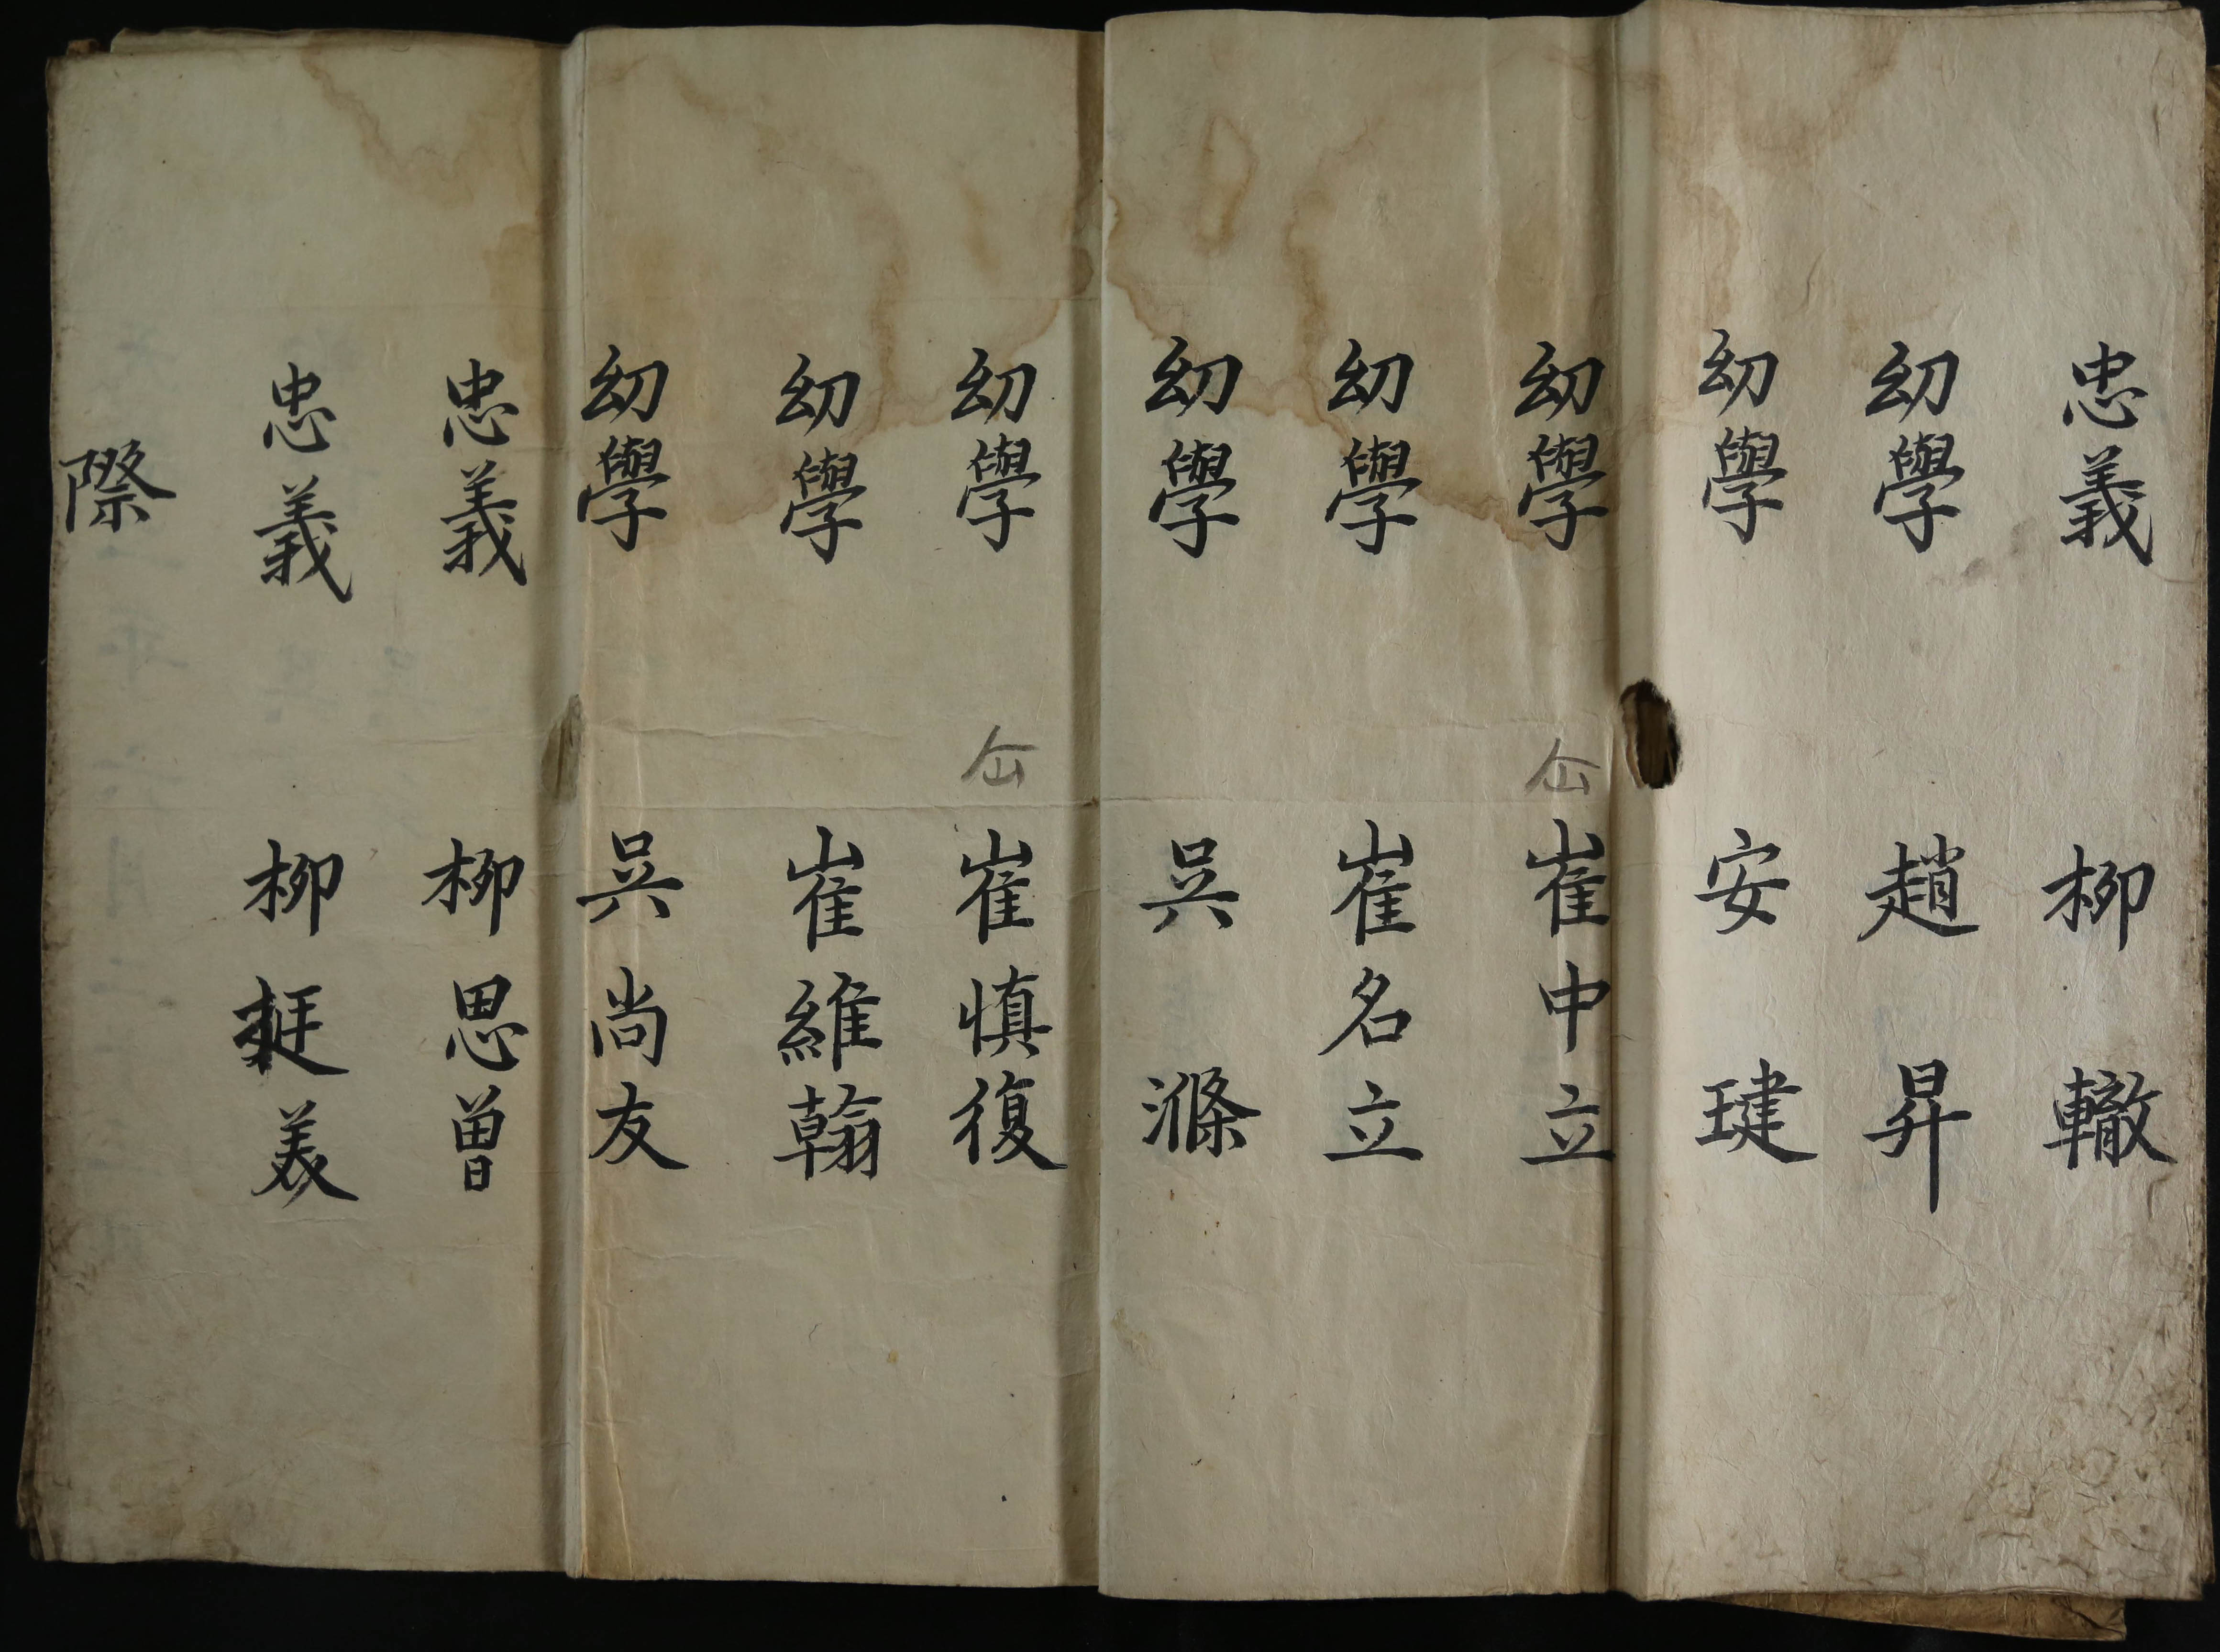 忠義 柳轍
幼學 趙昇
幼學 安琎
幼學 仚 崔中立
幼學 崔名立
幼學 吳滌
幼學 仚 崔愼復
幼學 崔維翰
幼學 吳尙友
忠義 柳思曾
忠義 柳美
際